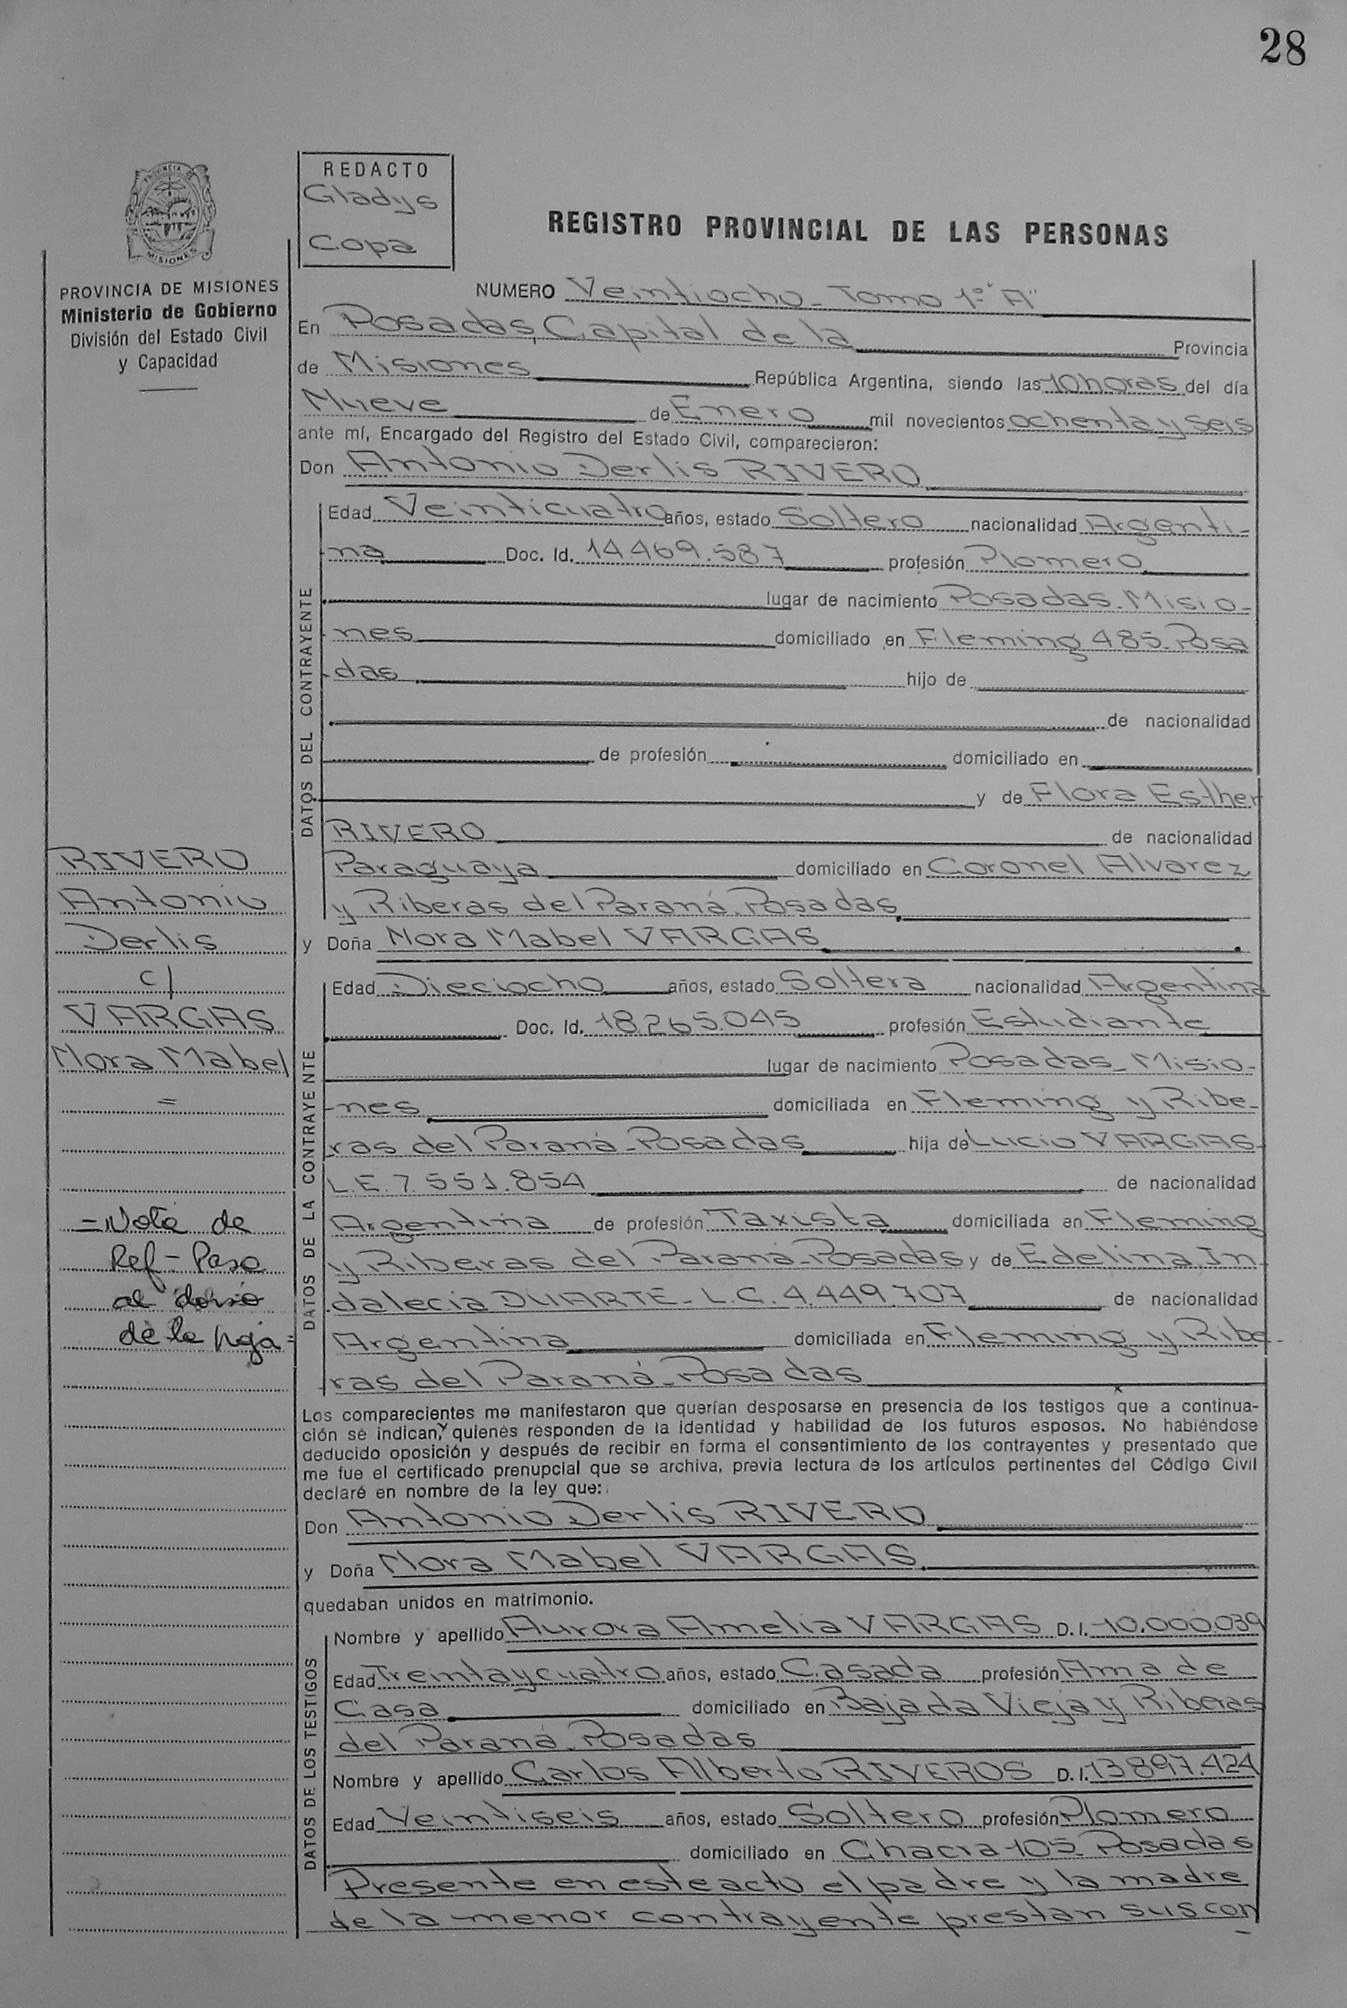 28
REDACTO
Gladys
Copa
REGISTRO PROVINCIAL DE LAS PERSONAS
PROVINCIA DE MISIONES
Ministerio de Gobierno
División del Estado Civil
y Capacidad
NUMERO Veintiocho - Tomo 1º "A"
En Posadas, Capital de la Provincia
de Misiones República Argentina, siendo las 10 horas del día
Nueve de Enero mil novecientos ochenta y seis
ante mí, Encargado del Registro del Estado Civil, comparecieron:
Don Antonio Derlis RIVERO
DATOS DEL CONTRAYENTE
Edad Veinticuatro años, estado Soltero nacionalidad Argenti-
na Doc. Id. 14.469.587 profesión Plomero
lugar de nacimiento Posadas. Misio-
nes domiciliado en Fleming 485. Posa
das hijo de
de nacionalidad
de profesión domiciliado en
y de Flora Esther
RIVERO de nacionalidad
Paraguaya domiciliado en Coronel Alvarez
y Riberas del Paraná. Posadas
y Doña Nora Mabel VARGAS
RIVERO
Antonio
Derlis
c/
VARGAS
Nora Mabel
=
= Nota de
Ref - Pasa
al dorso
de la hoja =
DATOS DE LA CONTRAYENTE
Edad Dieciocho años, estado Soltera nacionalidad Argentina
Doc. Id. 18.265.045 profesión Estudiante
lugar de nacimiento Posadas - Misio-
nes domiciliada en Fleming y Ribe-
ras del Paraná - Posadas hija de Lucio VARGAS-
L.E. 7.551.854 de nacionalidad
Argentina de profesión Taxista domiciliada en Fleming
y Riberas del Paraná - Posadas y de Edelina In
dalecia DUARTE - L.C. 4.449.707 de nacionalidad
Argentina domiciliada en Fleming y Ribe-
ras del Paraná - Posadas
Los comparecientes me manifestaron que querían desposarse en presencia de los testigos que a continua-
ción se indican, y quienes responden de la identidad y habilidad de los futuros esposos. No habiéndose
deducido oposición y después de recibir en forma el consentimiento de los contrayentes y presentado que
me fue el certificado prenupcial que se archiva, previa lectura de los artículos pertinentes del Código Civil
declaré en nombre de la ley que:
Don Antonio Derlis RIVERO
y Doña Nora Mabel VARGAS
quedaban unidos en matrimonio.
DATOS DE LOS TESTIGOS
Nombre y apellido Aurora Amelia VARGAS D.I. 10.000.039
Edad Treinta y cuatro años, estado Casada profesión Ama de
Casa domiciliado en Bajada Vieja y Riberas
del Paraná. Posadas
Nombre y apellido Carlos Alberto RIVEROS D.I. 13.897.424
Edad Veintiseis años, estado Soltero profesión Plomero
domiciliado en Chacra 105. Posadas
Presente en este acto el padre y la madre
de la menor contrayente prestan sus con